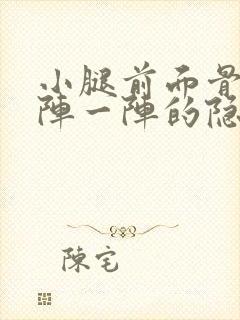 小腿前而骨
陣一陣的隐
陳宅